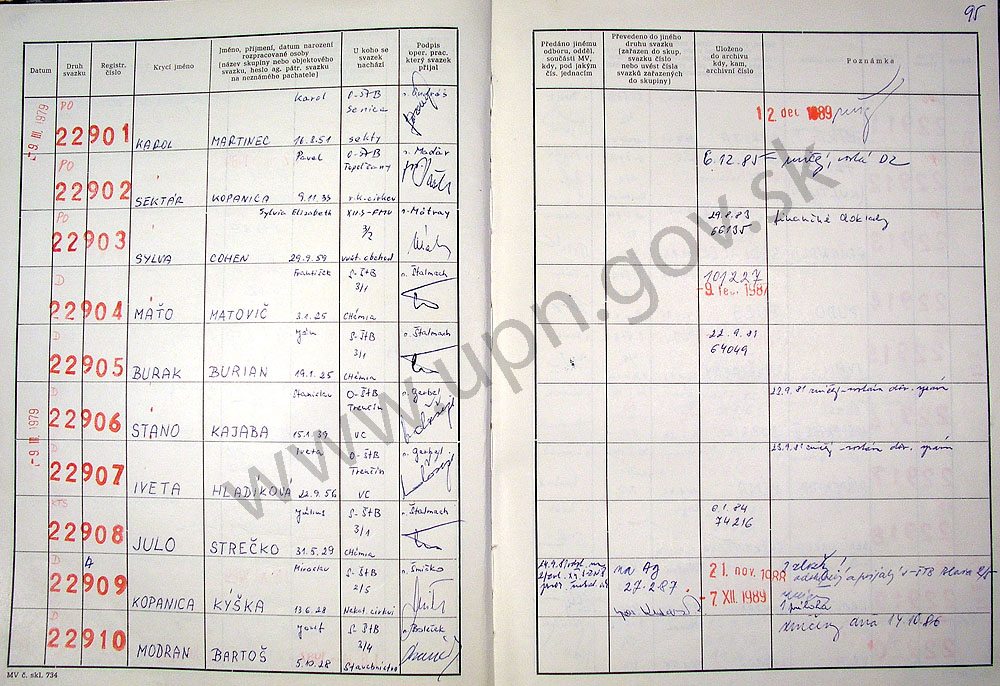 95
Datum
Druh svazku
Registr. číslo
Krycí jméno
Jméno, příjmení, datum narození
rozpracované osoby
(název skupiny nebo objektového
svazku, heslo ag. pátr. svazku
na neznámého pachatele)
U koho se
svazek
nachází
Podpis
oper. prac.
který svazek
přijal
Předáno jinému
odboru, odděl.
součásti MV,
kdy, pod jakým
čís. jednacím
Převedeno do jiného
druhu svazku
(zařazen do skup.
svazku číslo
nebo uvést čísla
svazků zařazených
do skupiny)
Uloženo
do archivu
kdy, kam,
archivní číslo
Poznámka
-9. III. 1979
PO
22901
KAROL
Karol
MARTINEC 16.8.51
O-ŠTB
Senica
sekty
12. dec 1989
PO
22902
SEKTÁR
Pavel
KOPANICA 9.11.33
O-ŠTB
Topoľčany
r.k. cirkev
p. Madár
6.12.85
PO
22903
SYLVA
Sylvia Elizabeth
COHEN 29.9.59
XII.S-FMV
3/2
p. Mátray
29.8.83
66135
finančné doklady
D
22904
MAŤO
František
MATOVIČ 3.1.25
S-ŠtB
3/1
CHémia
p. Štalmach
101227
-9. feb. 1987
D
22905
BURAK
Ján
BURIAN 19.1.25
S-ŠtB
3/1
CHémia
p. Štalmach
22.9.81
64049
-9. III. 1979
D
22906
STANO
Stanislav
KAJABA 15.1.39
O-ŠtB
Trenčín
VC
p. Goebel
D
22907
IVETA
Iveta
HLADIKOVÁ 22.9.56
O-ŠtB
Trenčín
VC
p. Goebel
KTS
22908
JULO
Július
STREČKO 31.5.29
S-ŠtB
3/1
CHémia
p. Štalmach
74216
D
A
22909
KOPANICA
Miroslav
KÝŠKA 13.6.28
S-ŠtB
2/5
Nekat. cirkvi
p. Šmičko
na Ag
27.2.87
21. nov. 1988
-7. XII. 1989
1 príloha
D
22910
MODRAN
Jozef
BARTOŠ 5.10.28
S-ŠtB
3/4
Stavebníctvo
zničený dňa 14.10.86
MV č. skl. 734
www.upn.gov.sk